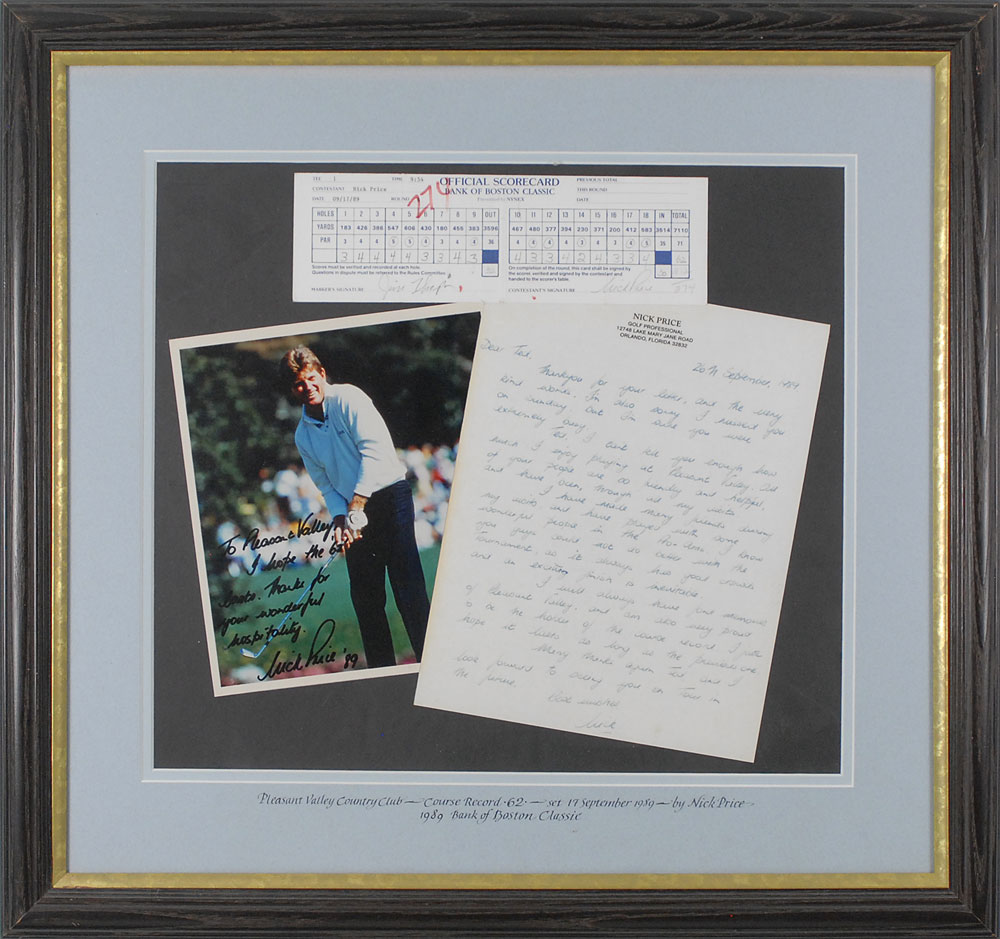 TEE 1 TIME 9:56 OFFICIAL SCORECARD PREVIOUS TOTAL
CONTESTANT Nick Price BANK OF BOSTON CLASSIC THIS ROUND
DATE 09/17/89 ROUND 274 Presented by NYNEX DATE
HOLES 1 2 3 4 5 6 7 8 9 OUT 10 11 12 13 14 15 16 17 18 IN TOTAL
YARDS 183 428 386 547 606 430 180 455 383 3596 467 480 377 394 230 371 200 412 583 3514 7110
PAR 3 4 4 5 5 4 3 4 4 36 4 4 4 4 3 4 3 4 5 35 71
3 4 4 4 4 3 3 4 3 4 3 3 4 2 4 3 3 4 62
Scores must be verified and recorded at each hole. On completion of the round, this card shall be signed by
Questions in dispute must be referred to the Rules Committee. the scorer, verified and signed by the contestant and
handed to the scorer's table.
MARKER'S SIGNATURE CONTESTANT'S SIGNATURE Nick Price 274
To Pleasant Valley,
I hope the 62
lasts. Thanks for
your wonderful
hospitality.
Nick Price '89
NICK PRICE
GOLF PROFESSIONAL
12748 LAKE MARY JANE ROAD
ORLANDO, FLORIDA 32832
20th September, 1989
Dear Ted,
Thankyou for your letter, and the very
kind words. I'm also sorry I missed you
on Sunday, but I'm sure you were
extremely busy.
Ted, I can't tell you enough how
much I enjoy playing at Pleasant Valley. All
of your people are so friendly and helpful,
and have been through all my visits
I have made many friends during
my visits and have played with some
wonderful people in the Pro-Ams. I know
you guys could not do better with the
tournament, as it always has good crowds
and an exciting finish is inevitable.
I will always have fond memories
of Pleasant Valley, and am also very proud
to be the holder of the course record. I just
hope it lasts as long as the previous one.
Many thanks again Ted and I
look forward to seeing you on Tour in
the future.
Best wishes
Nick
Pleasant Valley Country Club — Course Record ·62· — set 17 September 1989 — by Nick Price
1989 Bank of Boston Classic